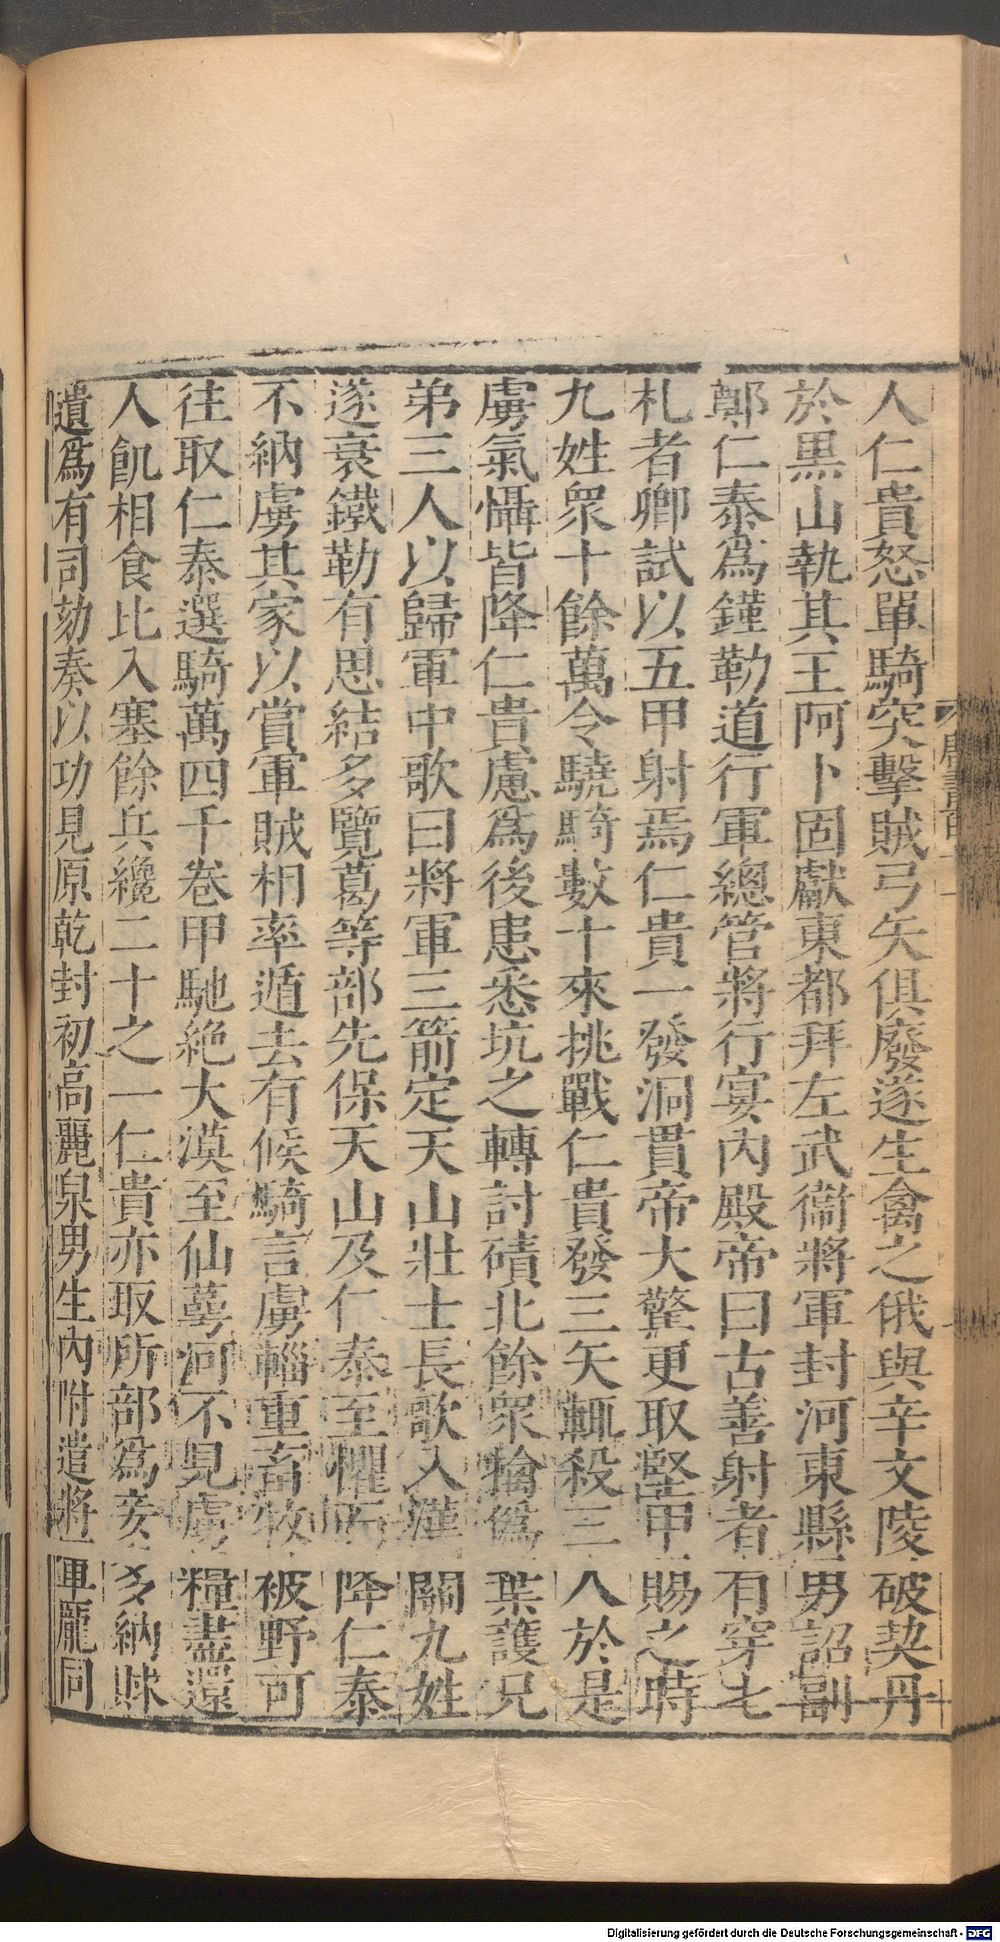 人仁貴怒單騎突擊賊弓矢俱廢遂生禽之俄與辛文陵破契丹
於黑山執其王阿卜固獻東都拜左武衞將軍封河東縣男詔副
鄭仁泰爲鐵勒道行軍總管將行宴內殿帝曰古善射者有穿七
札者卿試以五甲射焉仁貴一發洞貫帝大驚更取堅甲賜之時
九姓眾十餘萬令驍騎數十來挑戰仁貴發三矢輒殺三人於是
虜氣懾皆降仁貴慮爲後患悉坑之轉討磧北餘眾擒僞葉護兄
弟三人以歸軍中歌曰將軍三箭定天山壯士長歌入漢關九姓
遂衰鐵勒有思結多覽葛等部先保天山及仁泰至懼而降仁泰
不納虜其家以賞軍賊相率遁去有候騎言虜輜重畜牧被野可
往取仁泰選騎萬四千卷甲馳絶大漠至仙萼河不見虜糧盡還
人飢相食比入塞餘兵纔二十之一仁貴亦取所部爲妾多納賕
遺爲有司劾奏以功見原乾封初高麗泉男生內附遣將軍龐同
唐書百十一
Digitalisierung gefördert durch die Deutsche Forschungsgemeinschaft - DFG